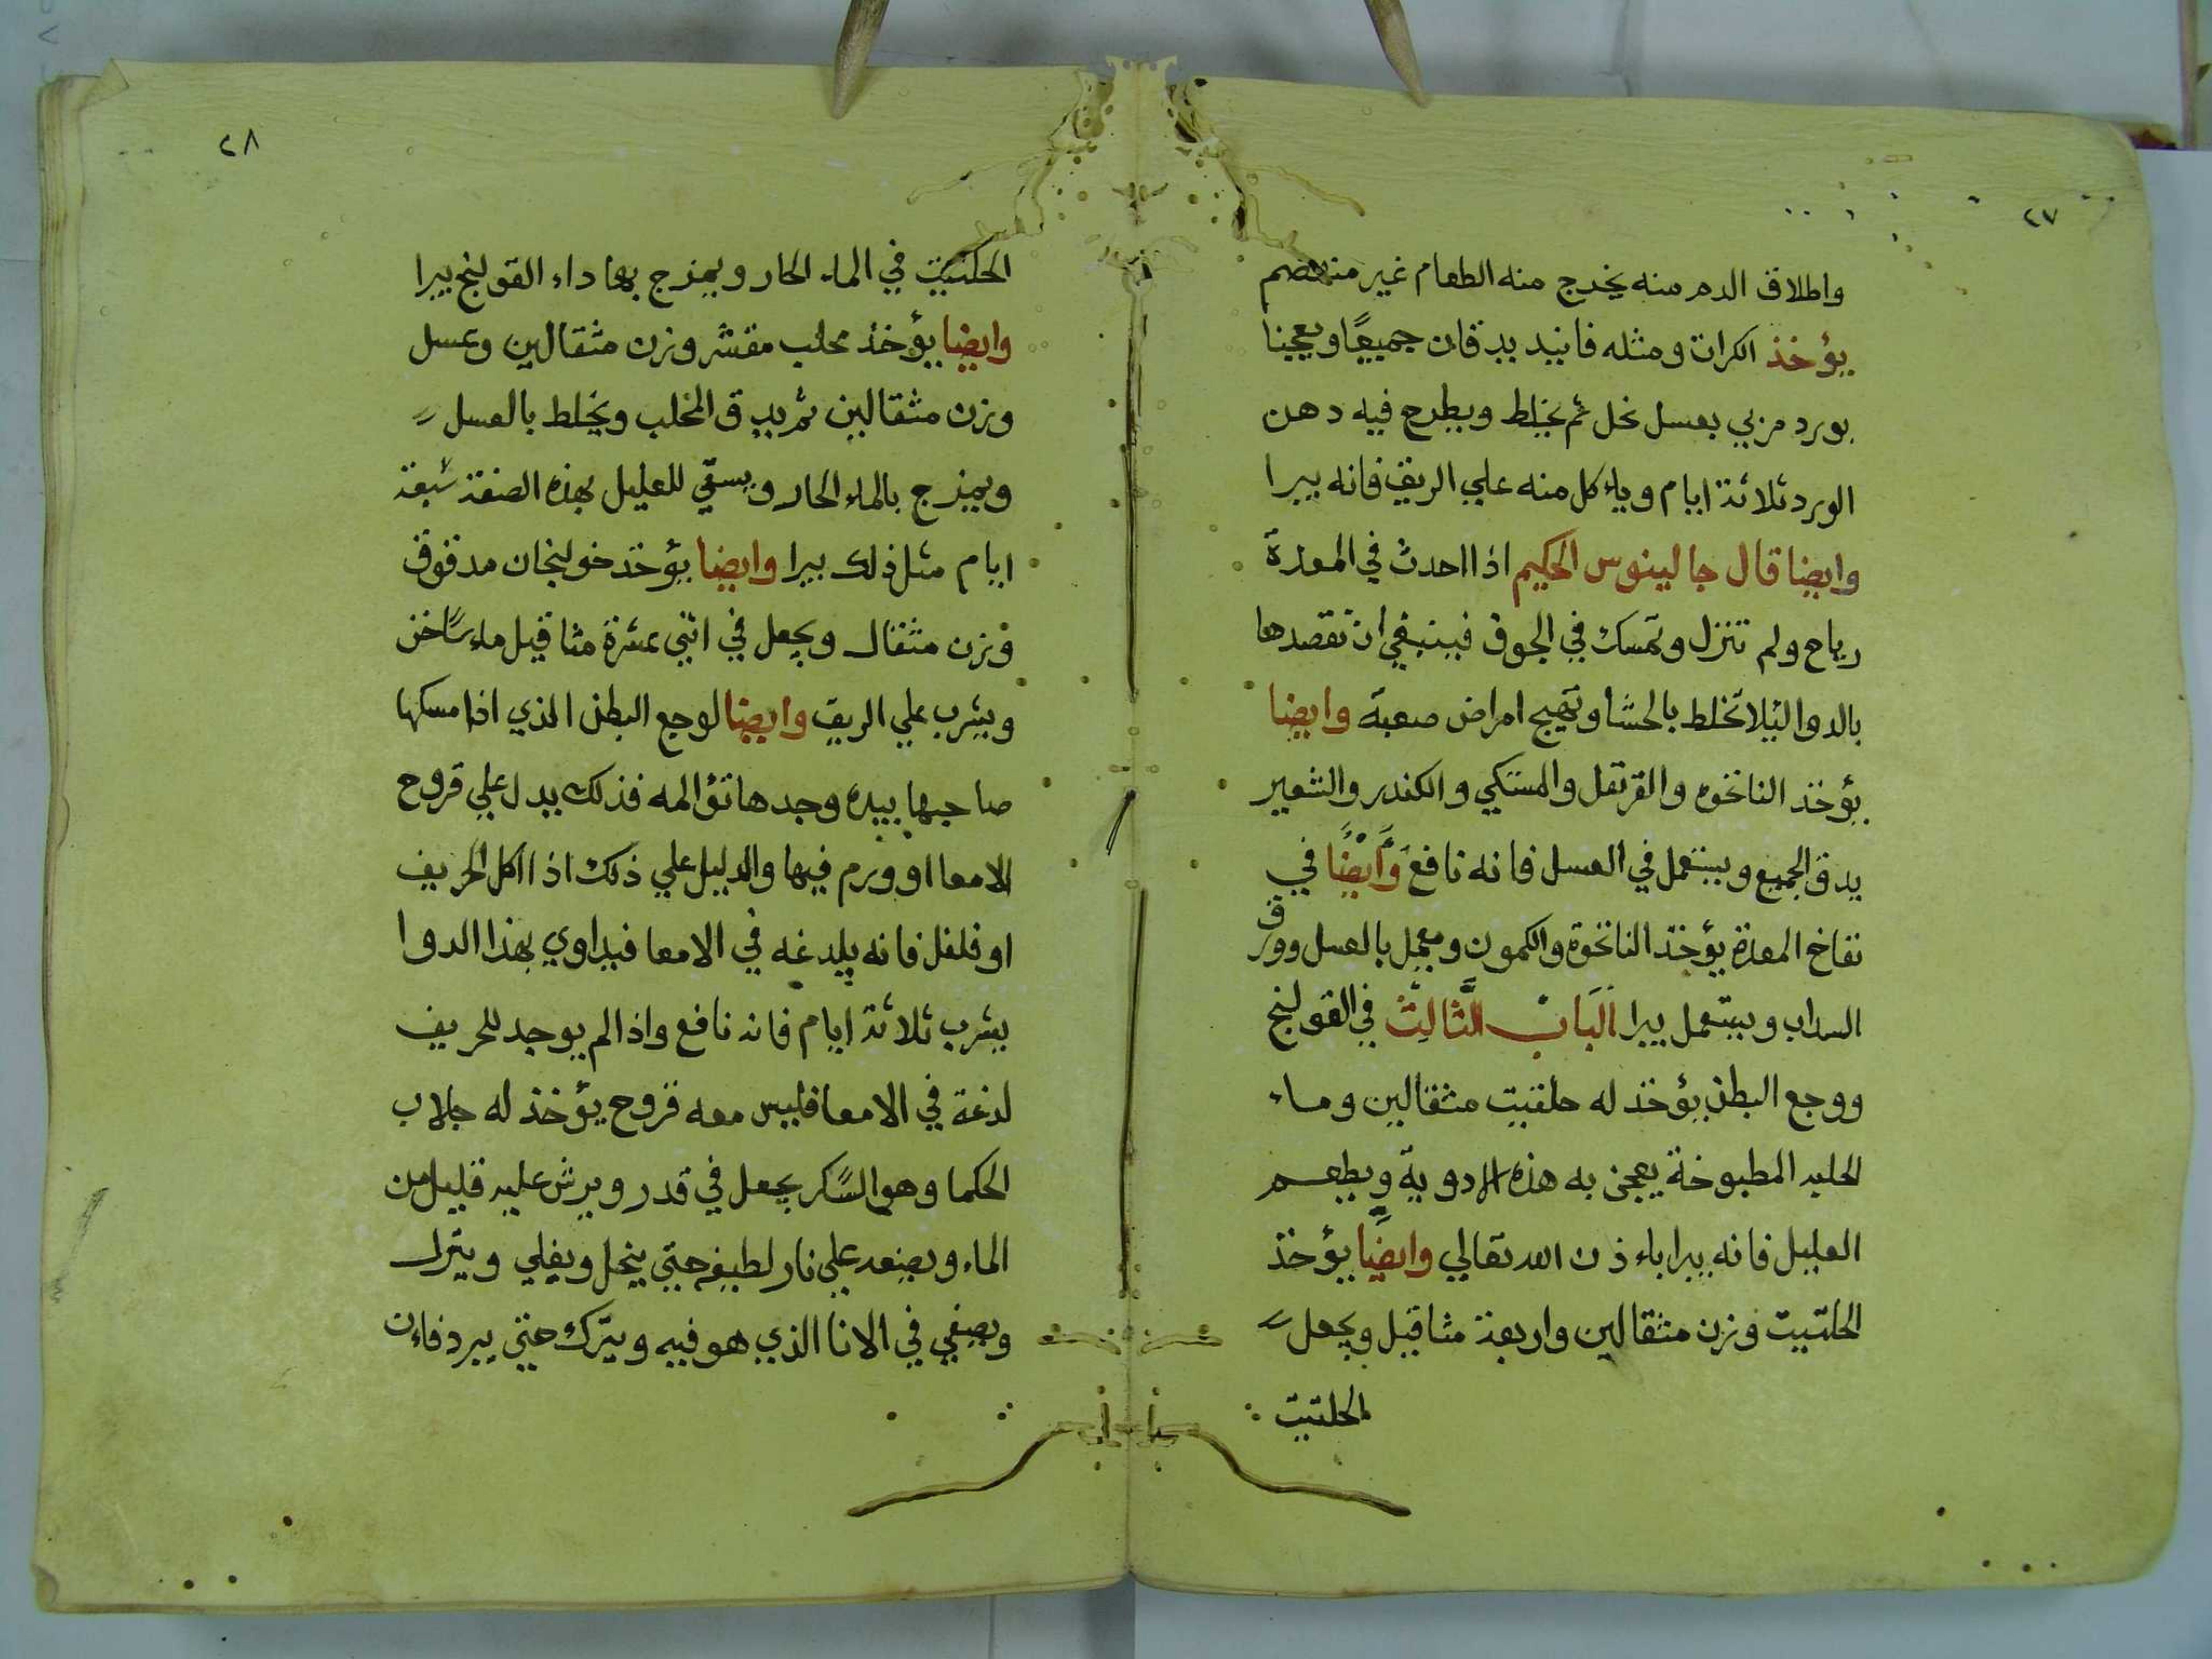 ٢٧
واطلاق الدم منه يخرج منه الطعام غير منهضم
يؤخذ الكرات ومثله فانيد يدقان جميعًا ويعجينا
بورد مربي بعسل نحل ثم يخلط ويطرح فيه دهن
الورد ثلاثة ايام وياءكل منه علي الريق فانه يبرا
وايضا قال جالينوس الحكيم اذا احدث في المعدة
رياح ولم تنزل وتمسك في الجوف فينبغي ان تقصدها
بالدوا ليلا تخلط بالحشا وتهيج امراض صعبة وايضا
يؤخذ النانخوه والقرنفل والمستكي والكندر والشعير
يدق الجميع ويستعمل في العسل فانه نافع وَايضًا في
نفاخ المعدة يؤخذ النانخوة والكمون ومعمل بالعسل وورق
السداب ويستعمل يبرا اَلبَابْ الثَّالِثْ في القولنج
ووجع البطن يؤخذ له حلتيت مثقالين وماء
الحلبه المطبوخة يعجن به هذه الادوية ويطعم
العليل فانه يبرا باءذن الله تعالي وايضًا يؤخذ
الحلتيت وزن مثقالين واربعة مثاقيل ويجعل
الحلتيت
٢٨
الحلتيت في الماء الحار ويمزج بها داء القولنج يبرا
وايضا يؤخذ محلب مقشر وزن مثقالين وعسل
وزن مثقالين ثم يدق المحلب ويخلط بالعسل
ويمزج بالماء الحار ويسقي للعليل بهذه الصنفة سبعة
ايام مثل ذلك يبرا وايضا يؤخذ خولنجان مدقوق
وزن مثقال ويجعل في اثني عشرة مثاقيل ماء ساخن
ويشرب علي الريق وايضا لوجع البطن الذي اذا مسكها
صاحبها بيده وجدها تؤالمه فذلك يدل علي قروح
الامعا او ورم فيها والدليل علي ذلك اذا اكل الحريف
او فلفل فانه يلدغه في الامعا فيداوي بهذا الدوا
يشرب ثلاثة ايام فانه نافع واذا لم يوجد للحريف
لدغة في الامعا فليس معه قروح يؤخذ له جلاب
الحكما وهو السكر يجعل في قدر ويرش عليه قليل من
الماء ويصعد علي نار لطيفه حتي ينحل ويغلي وينزل
ويصفي في الانا الذي هو فيه ويترك حتي يبرد فاءن